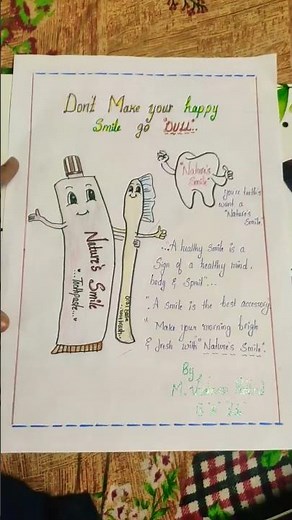 Don't Make your happy
Smile go "DULL"..
"Nature's
Smile"
your teeth's
want a
"Nature's
Smile
Nature's Smile
..toothpaste..
...A healthy smile is a
Sign of a healthy mind,
body & Spirit"...
". A smile is the best accessory
" Make your morning bright
& fresh with "Nature's Smile".
By
M.